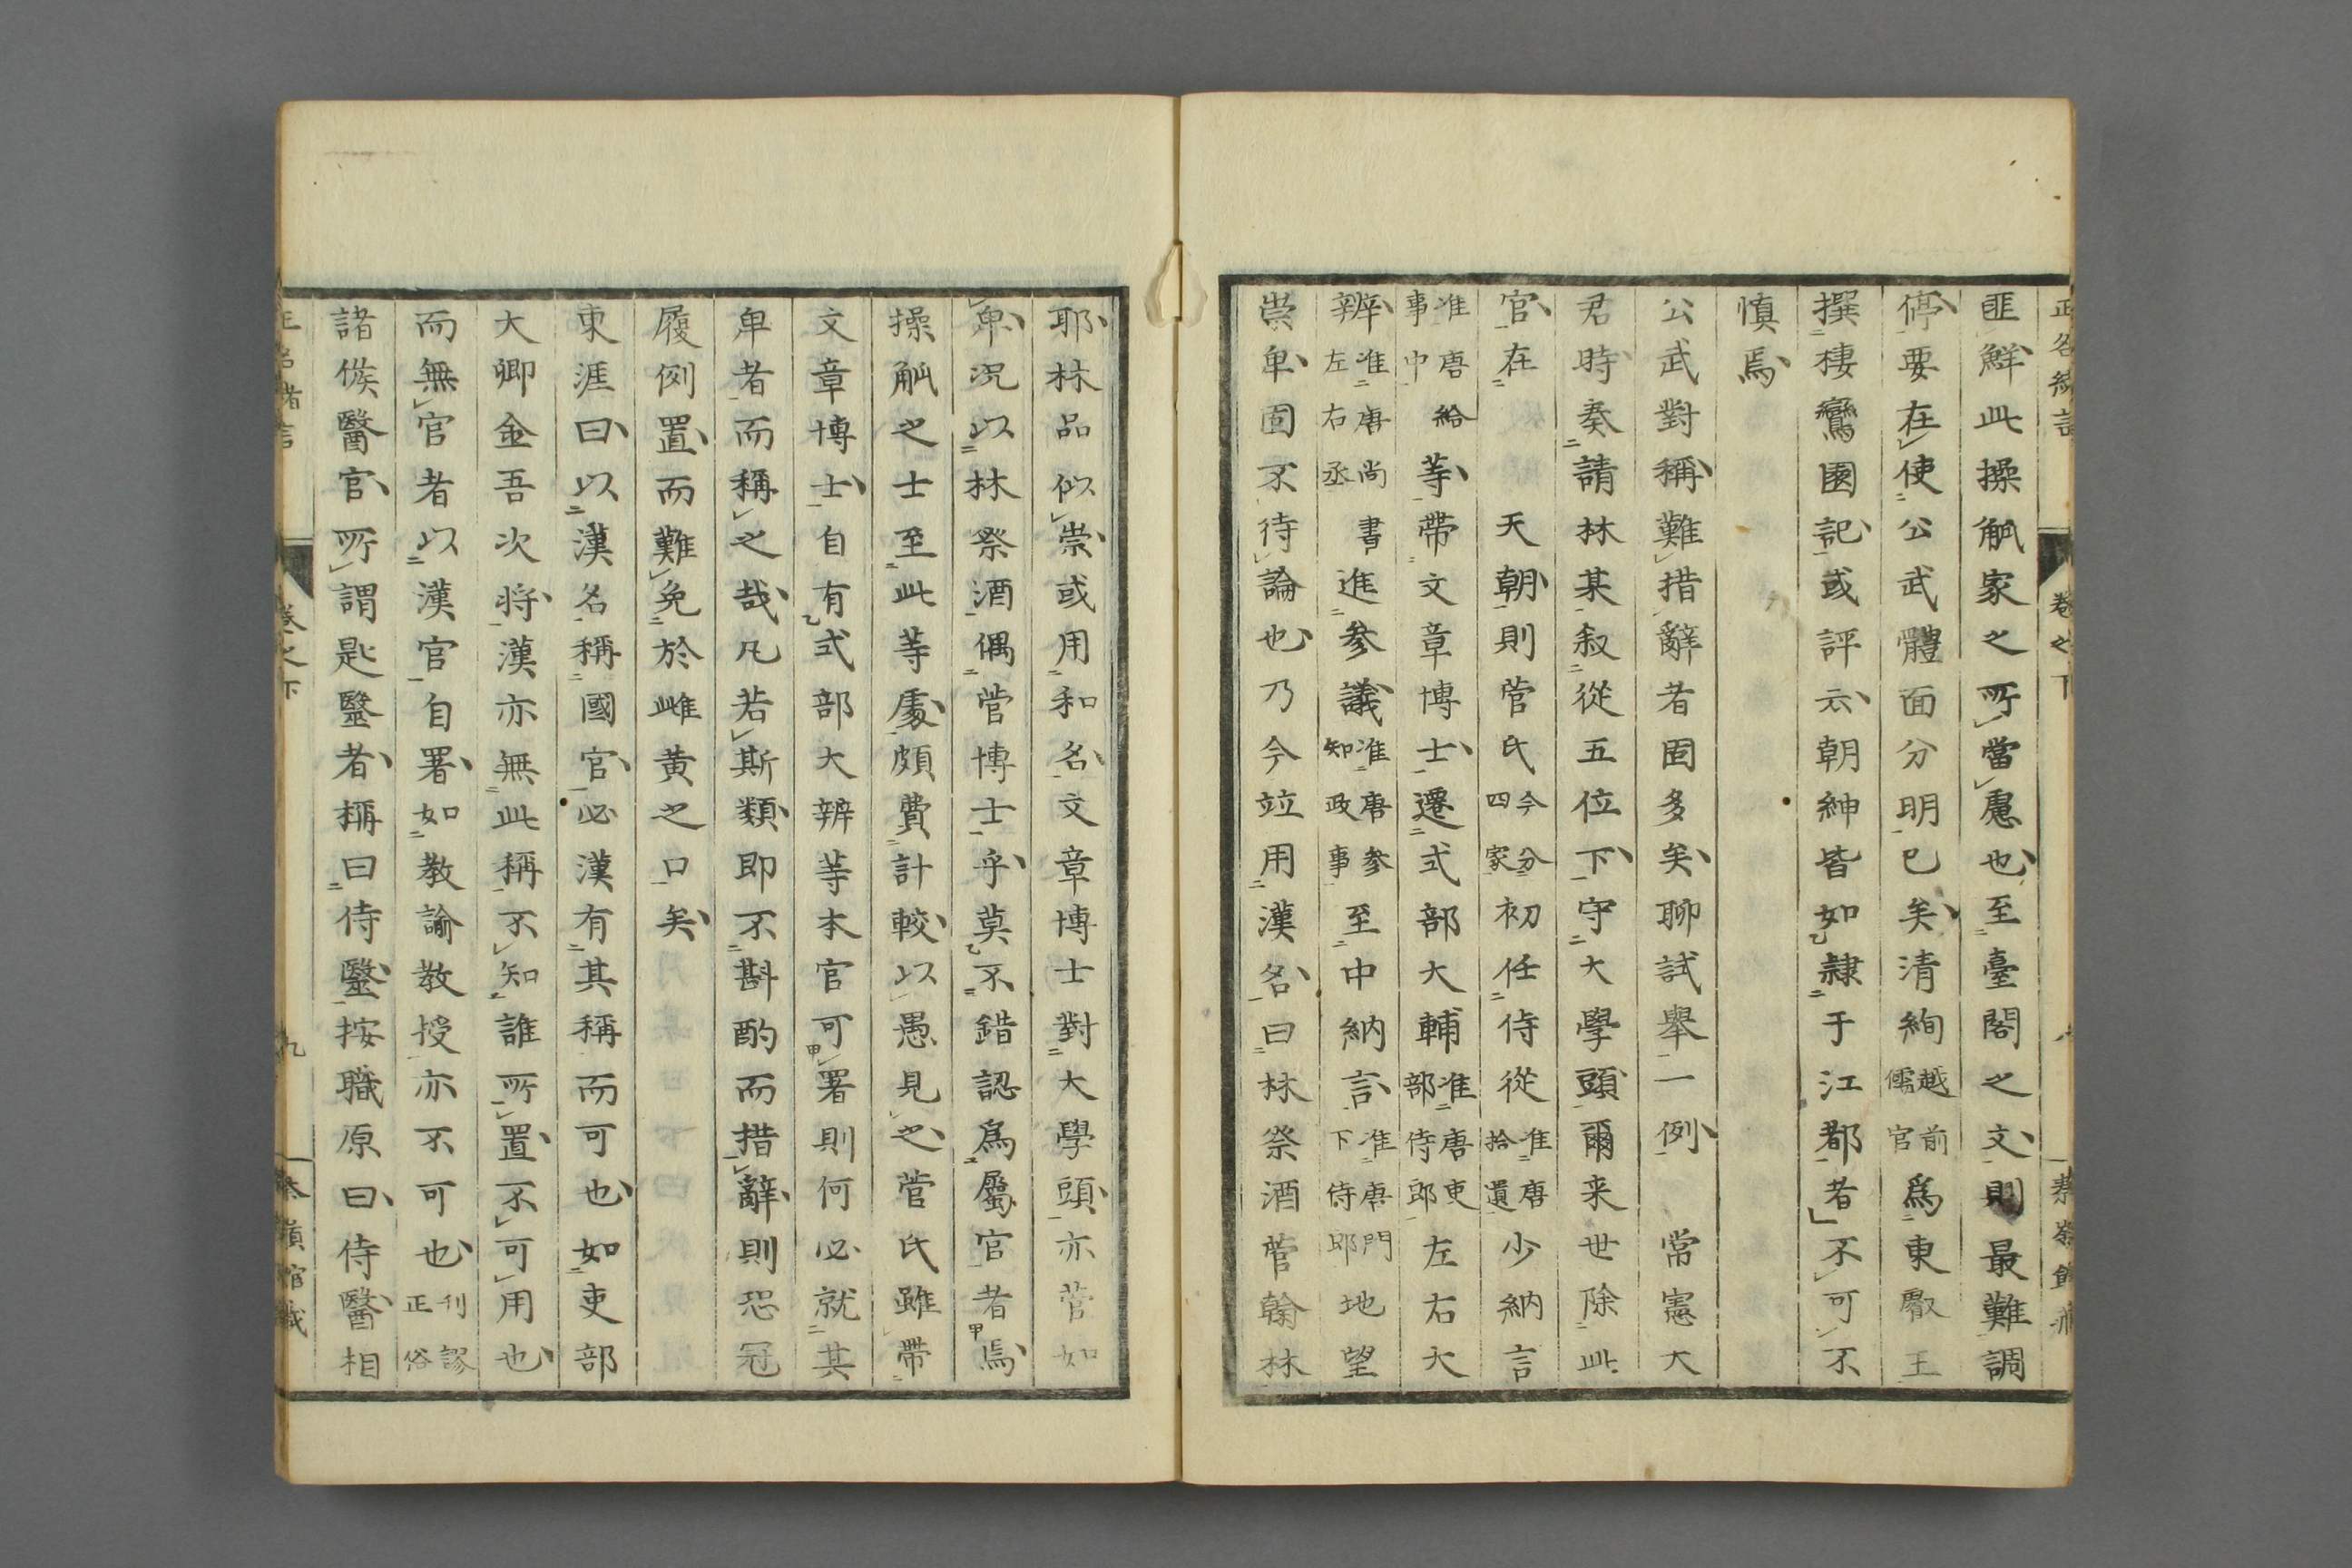 匪鮮此操觚家之所當慮也至臺閣之文則最難調
停要在使公武體面分明已矣清絢越前儒官為東叡王
撰棲鸞園記或評云朝紳皆如隷于江都者不可不
慎焉
公武對稱難措辭者固多矣聊試舉一例　常憲大
君時奏請林某叙從五位下守大學頭爾来世除此
官在　　天朝則菅氏今分四家初任侍從准唐拾遺少納言
准唐給事中等帶文章博士遷式部大輔准唐吏部侍郎左右大
辨准唐尚書左右丞進參議准唐參知政事至中納言准唐門下侍郎地望
崇卑固不待論也乃今竝用漢名曰林祭酒菅翰林
耶林品似崇或用和名文章博士對大學頭亦菅如
卑況以林祭酒偶菅博士乎莫不錯認為屬官者焉
操觚之士至此等處頗費計較以愚見之菅氏雖帶
文章博士自有式部大辨等本官可署則何必就其
卑者而稱之哉凡若斯類即不斟酌而措辭則恐冠
履例置而難免於雌黄之口矣
東涯曰以漢名稱國官必漢有其稱而可也如吏部
大卿金吾次将漢亦無此稱不知誰所置不可用也
而無官者以漢官自署如教諭教授亦不可也刊謬正俗
諸侯醫官所謂匙毉者稱曰侍毉按職原曰侍醫相
卷之下